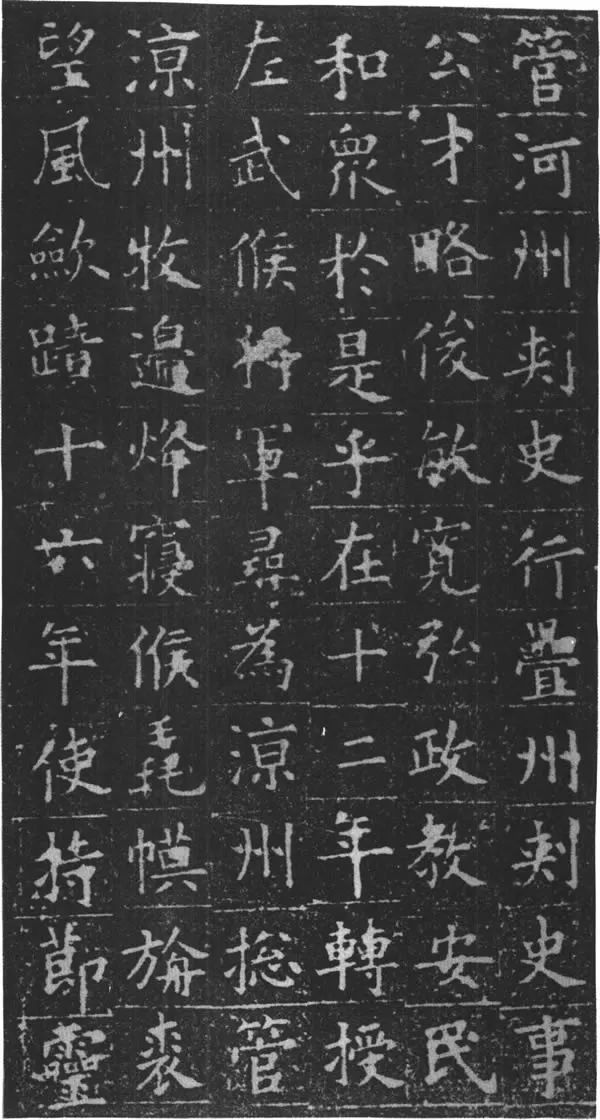 管河州刾史行疊州刾史事
公才略俊敏寬弘政教安民
和衆於是乎在十二年轉授
左武候將軍尋為涼州捴管
涼州牧邉烽寑候毳幙旃裘
望風歛蹟十六年使持節靈